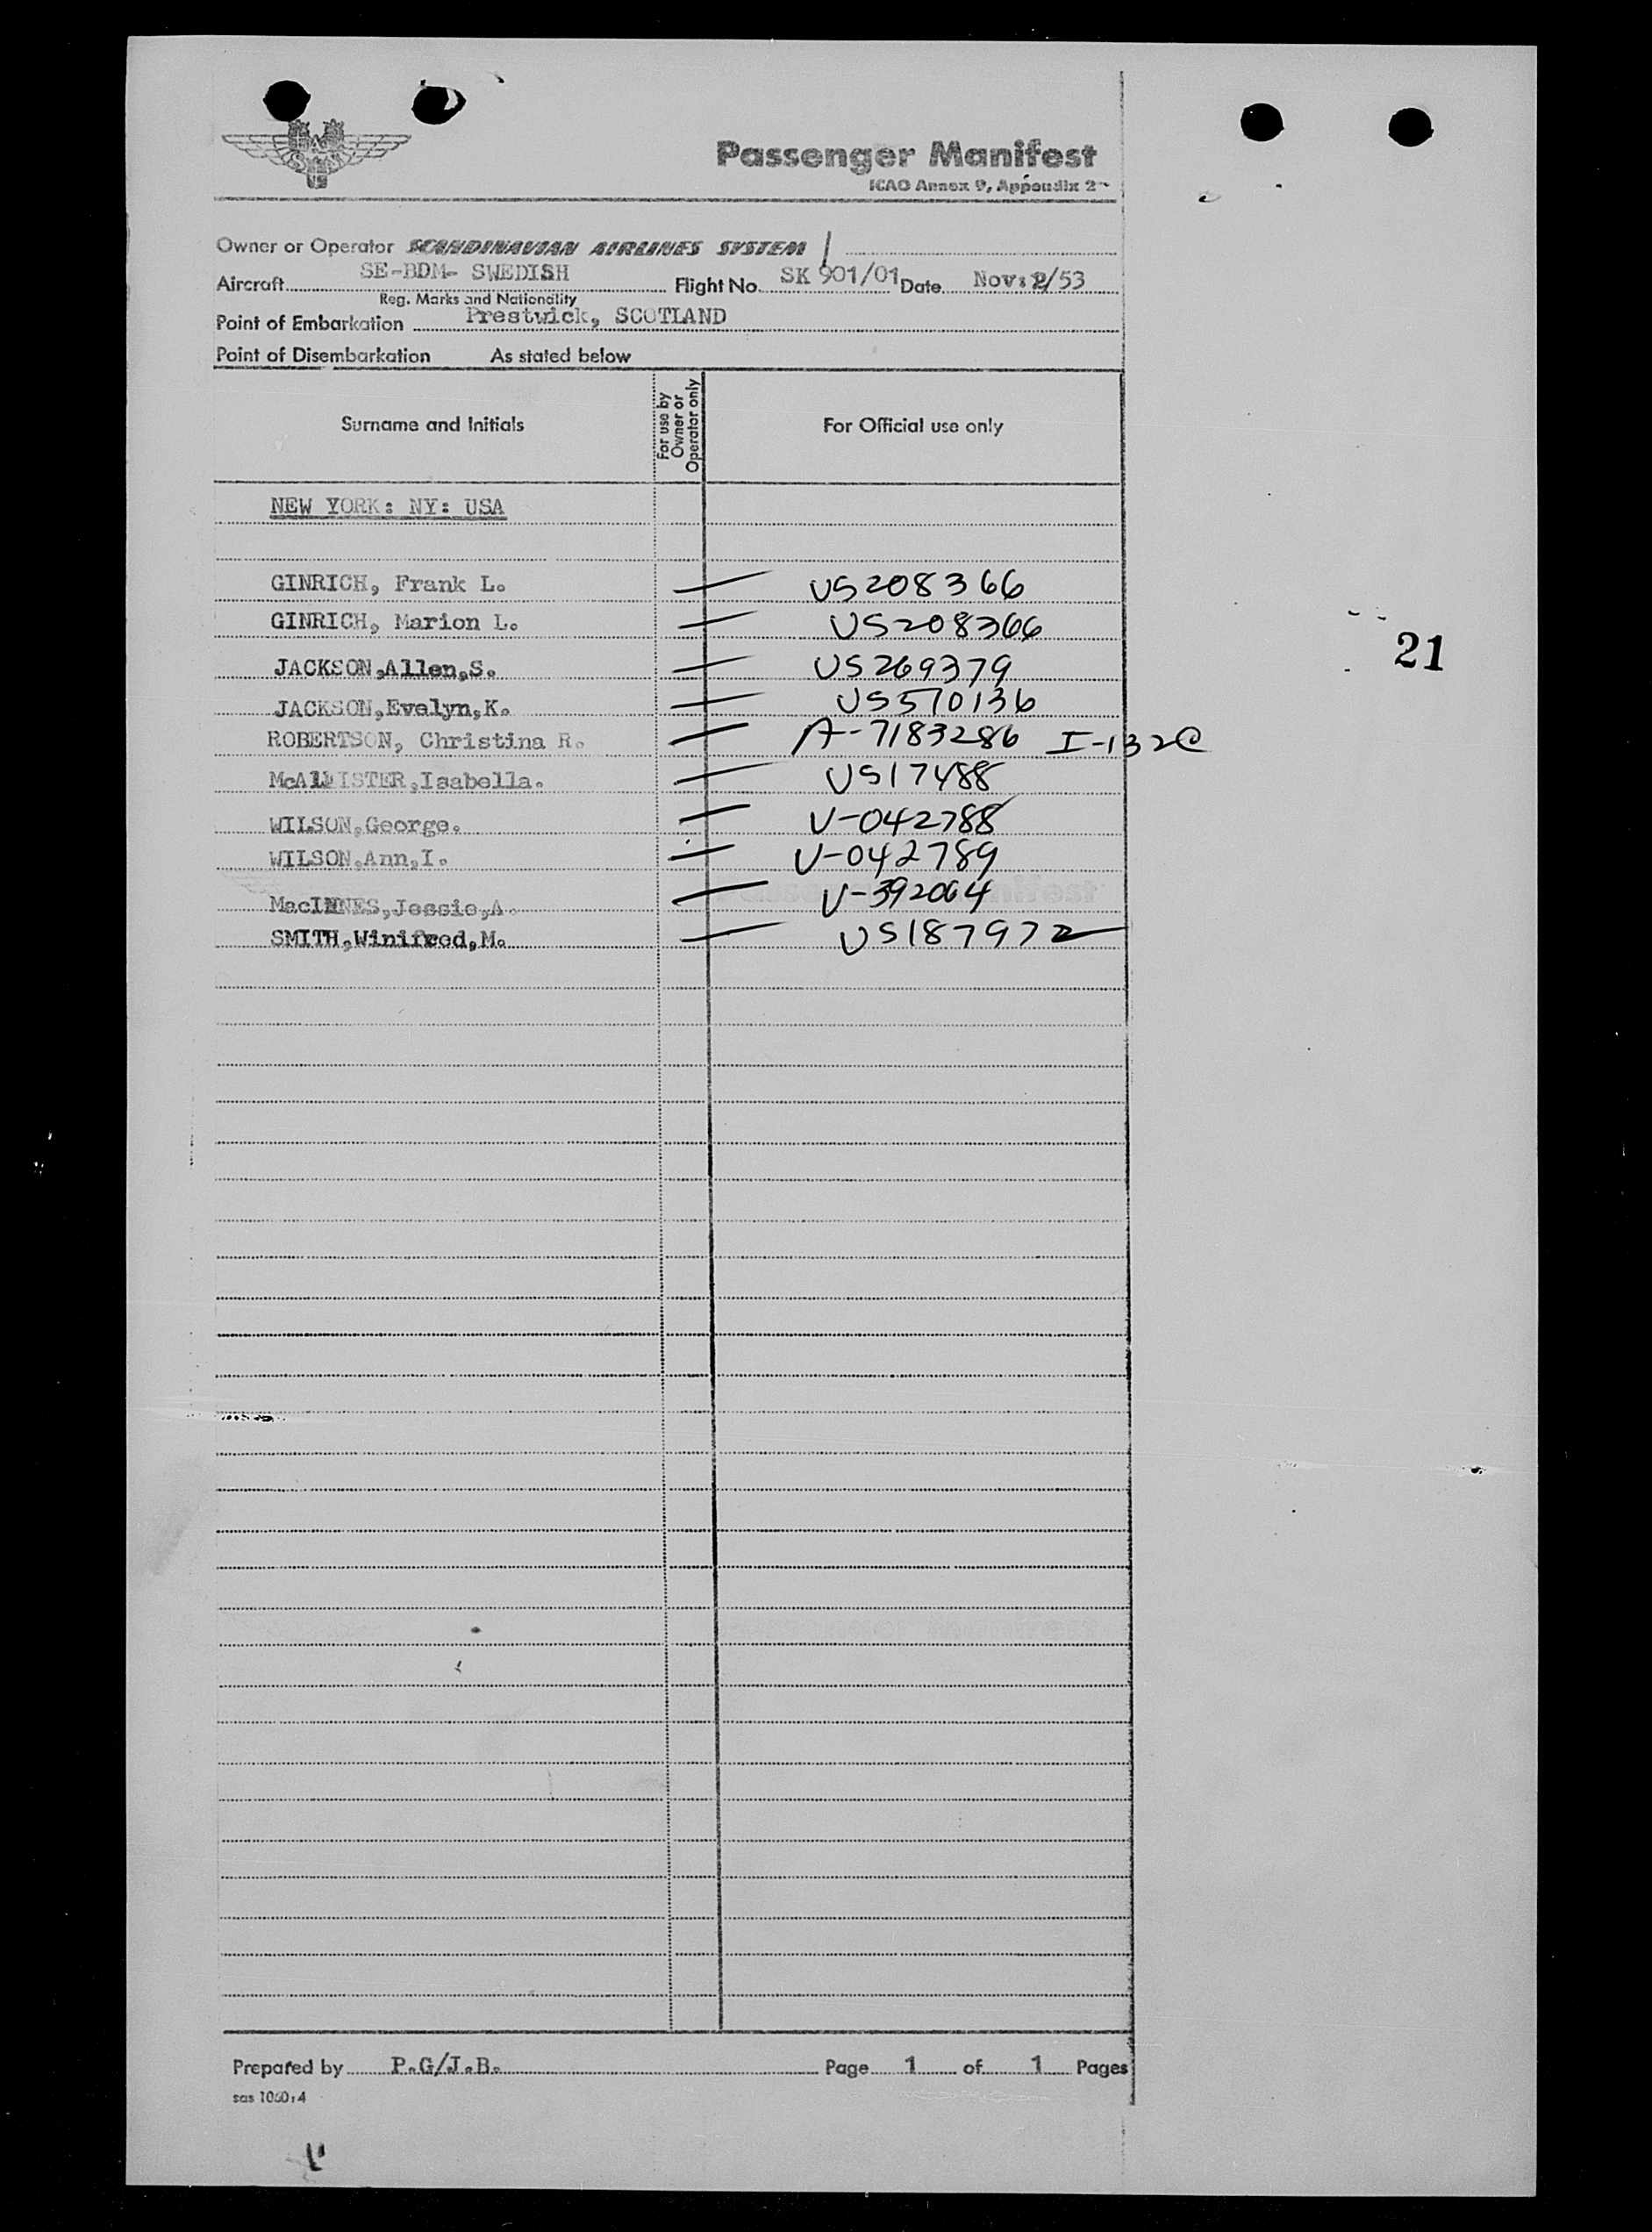 SAS
Passenger Manifest
ICAO Annex 9, Appendix 2
Owner or Operator SCANDINAVIAN AIRLINES SYSTEM /
Aircraft SE-BDM- SWEDISH Flight No. SK 901/01 Date Nov: 2/53
Reg. Marks and Nationality
Point of Embarkation Prestwick, SCOTLAND
Point of Disembarkation As stated below
Surname and Initials For use by Owner or Operator only For Official use only
NEW YORK: NY: USA
GINRICH, Frank L. — US208366
GINRICH, Marion L. — US208366
21
JACKSON,Allen,S. — US269379
JACKSON,Evelyn,K. — US570136
ROBERTSON, Christina R. — A-7183286 I-132C
McALLISTER,Isabella. — US17488
WILSON,George. — V-042788
WILSON,Ann,I. — V-042789
MacINNES,Jessie,A. — V-392064
SMITH,Winifred,M. — US187972
Prepared by P.G/J.B. Page 1 of 1 Pages
sas 1060:4